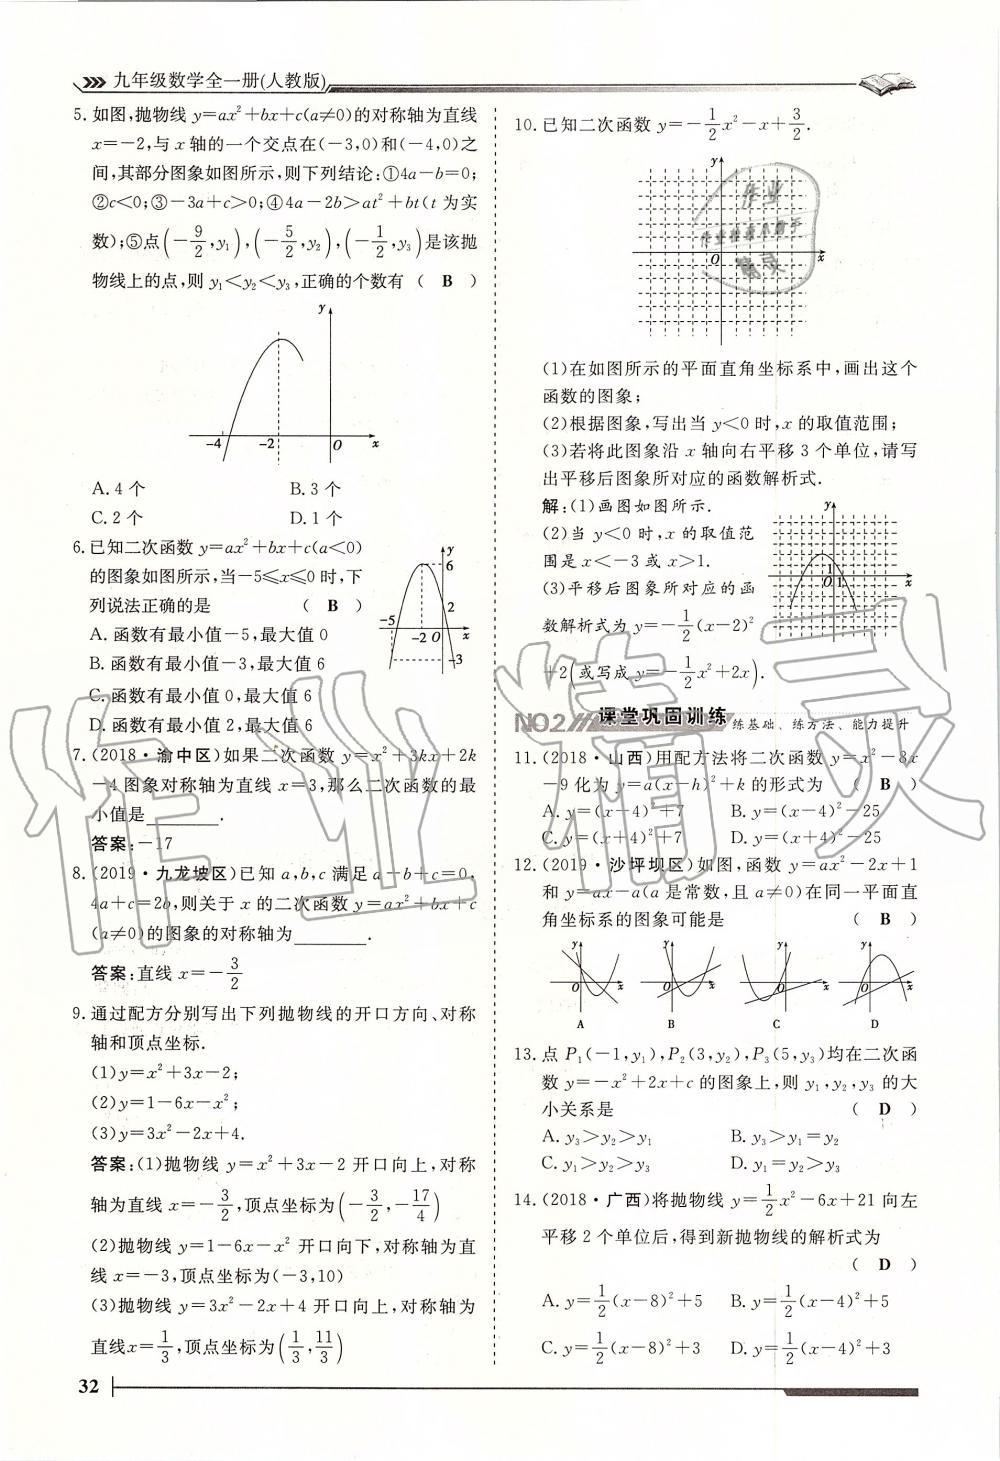 九年级数学全一册(人教版)
5. 如图,抛物线 y=ax²+bx+c(a≠0)的对称轴为直线
x=-2,与 x 轴的一个交点在(-3,0)和(-4,0)之
间,其部分图象如图所示,则下列结论:①4a-b=0;
②c<0;③-3a+c>0;④4a-2b>at²+bt(t 为实
数);⑤点(-9/2,y₁),(-5/2,y₂),(-1/2,y₃)是该抛
物线上的点,则 y₁<y₂<y₃,正确的个数有 ( B )
y
-4 -2 O x
A. 4 个 B. 3 个
C. 2 个 D. 1 个
6. 已知二次函数 y=ax²+bx+c(a<0)
的图象如图所示,当-5≤x≤0 时,下
列说法正确的是 ( B )
A. 函数有最小值-5,最大值 0
B. 函数有最小值-3,最大值 6
C. 函数有最小值 0,最大值 6
D. 函数有最小值 2,最大值 6
y
6
2
-5 -2 O x
-3
7. (2018·渝中区)如果二次函数 y=x²+3kx+2k
-4 图象对称轴为直线 x=3,那么二次函数的最
小值是________.
答案:-17
8. (2019·九龙坡区)已知 a,b,c 满足 a+b+c=0,
4a+c=2b,则关于 x 的二次函数 y=ax²+bx+c
(a≠0)的图象的对称轴为________.
答案:直线 x=-3/2
9. 通过配方分别写出下列抛物线的开口方向、对称
轴和顶点坐标.
(1)y=x²+3x-2;
(2)y=1-6x-x²;
(3)y=3x²-2x+4.
答案:(1)抛物线 y=x²+3x-2 开口向上,对称
轴为直线 x=-3/2,顶点坐标为(-3/2,-17/4)
(2)抛物线 y=1-6x-x² 开口向下,对称轴为直
线 x=-3,顶点坐标为(-3,10)
(3)抛物线 y=3x²-2x+4 开口向上,对称轴为
直线x=1/3,顶点坐标为(1/3,11/3)
32
10. 已知二次函数 y=-1/2x²-x+3/2.
y
作业
作业检查小助手
精灵
O x
(1)在如图所示的平面直角坐标系中,画出这个
函数的图象;
(2)根据图象,写出当 y<0 时,x 的取值范围;
(3)若将此图象沿 x 轴向右平移 3 个单位,请写
出平移后图象所对应的函数解析式.
解:(1)画图如图所示.
(2)当 y<0 时,x 的取值范
围是 x<-3 或 x>1.
(3)平移后图象所对应的函
数解析式为 y=-1/2(x-2)²
+2(或写成 y=-1/2x²+2x).
y
1
O 1 x
NO2 课堂巩固训练 练基础、练方法、能力提升
11. (2018·山西)用配方法将二次函数 y=x²-8x
-9 化为 y=a(x-h)²+k 的形式为 ( B )
A. y=(x-4)²+7 B. y=(x-4)²-25
C. y=(x+4)²+7 D. y=(x+4)²-25
12. (2019·沙坪坝区)如图,函数 y=ax²-2x+1
和 y=ax-a(a 是常数,且 a≠0)在同一平面直
角坐标系的图象可能是 ( B )
y y y y
O x O x O x O x
A B C D
13. 点 P₁(-1,y₁),P₂(3,y₂),P₃(5,y₃)均在二次函
数 y=-x²+2x+c 的图象上,则 y₁,y₂,y₃ 的大
小关系是 ( D )
A. y₃>y₂>y₁ B. y₃>y₁=y₂
C. y₁>y₂>y₃ D. y₁=y₂>y₃
14. (2018·广西)将抛物线 y=1/2x²-6x+21 向左
平移 2 个单位后,得到新抛物线的解析式为
( D )
A. y=1/2(x-8)²+5 B. y=1/2(x-4)²+5
C. y=1/2(x-8)²+3 D. y=1/2(x-4)²+3
作业精灵